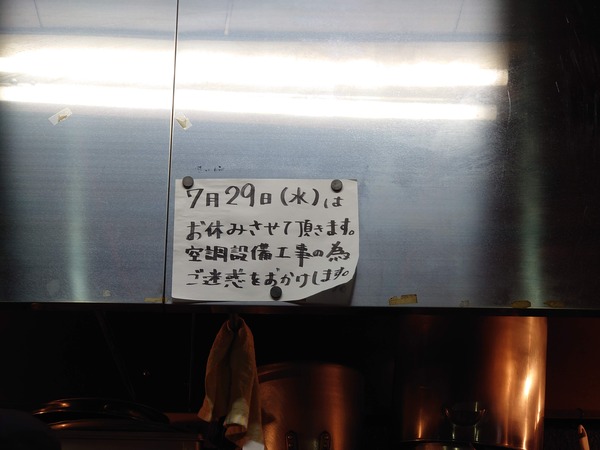 7月29日(水)は
お休みさせて頂きます。
空調設備工事の為
ご迷惑をおかけします。